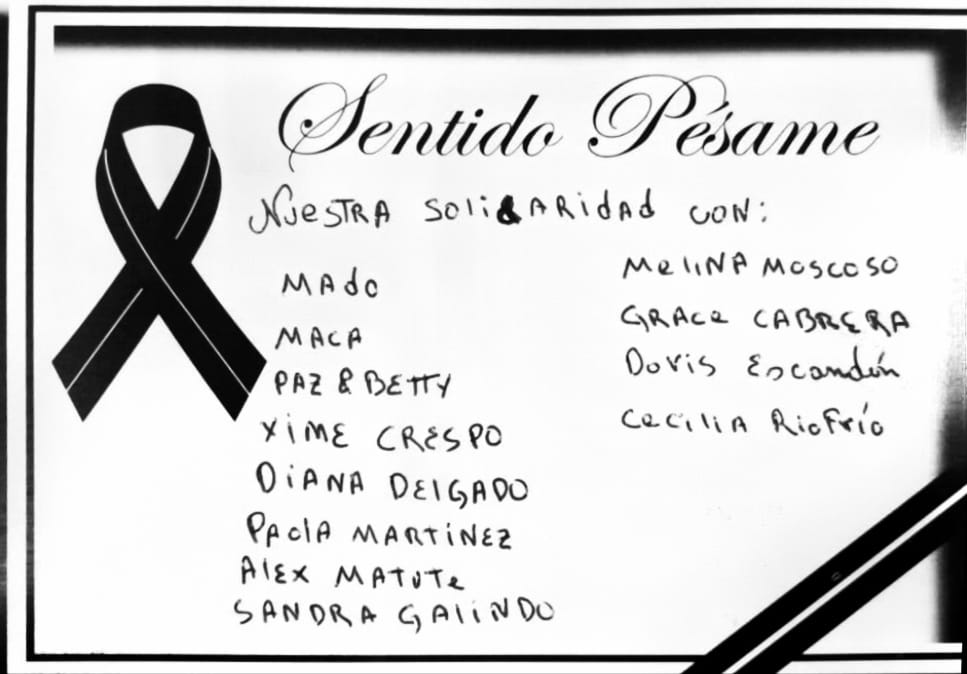 Sentido Pésame
NuesTRA SoliDARidAd CON:
MAdo
MACA
PAZ & BETTY
XiME CRESPO
DiANA DELGADO
PAolA MARTíNEZ
AlEX MATUTe
SANDRA GAliNDO
MeliNA Moscoso
GRACe CABRERA
Doris Escandón
CeciliA RioFrío